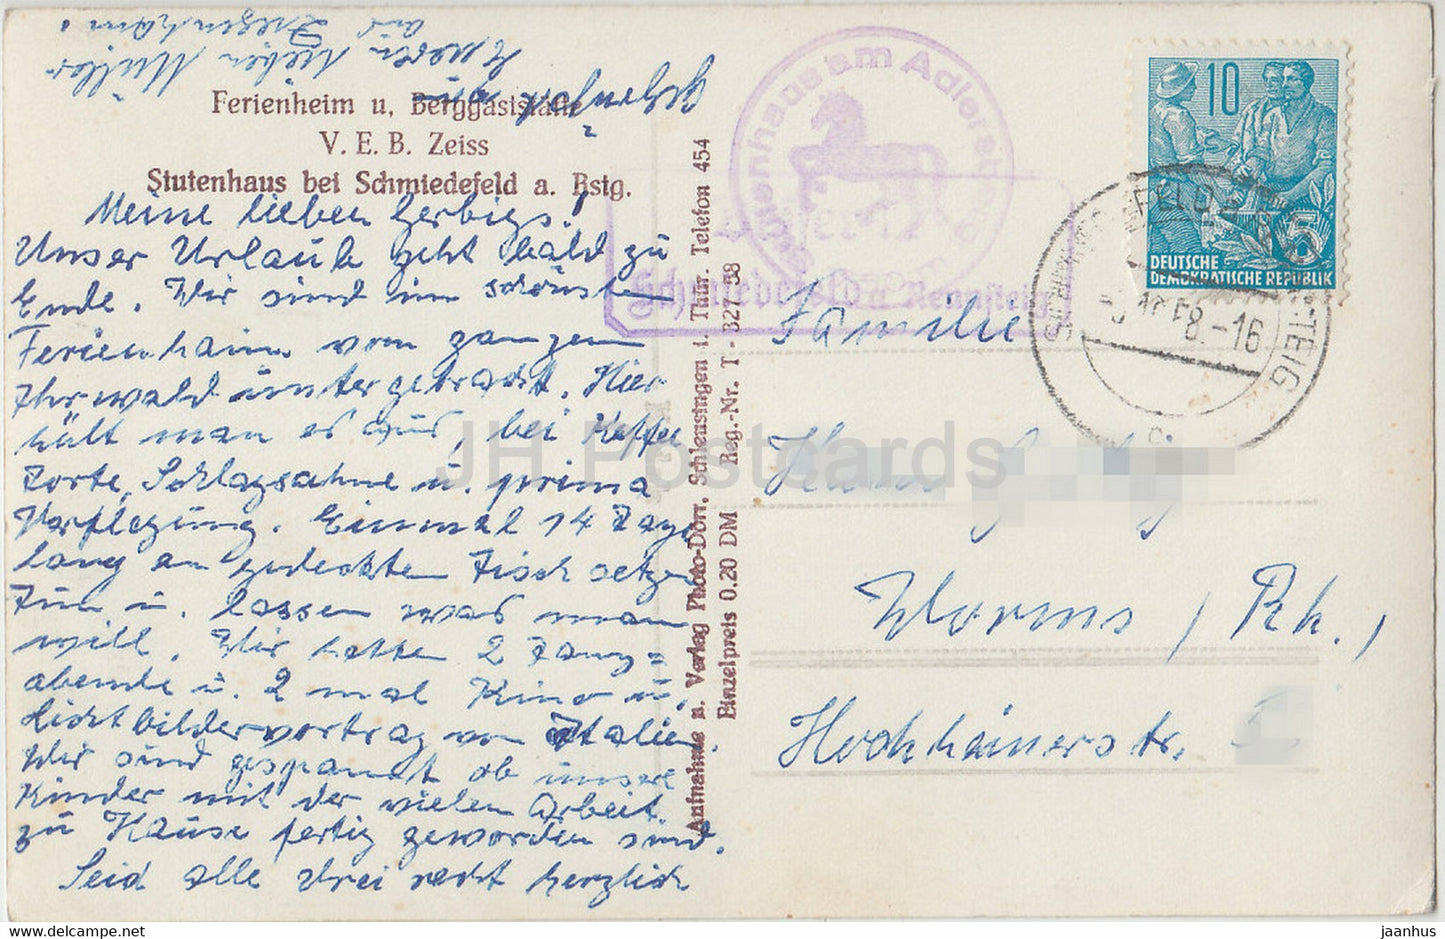 Ferienheim u. Berggaststätte
V. E. B. Zeiss
Stutenhaus bei Schmiedefeld a. Rstg.
Meine lieben Herbigs!
Unser Urlaub geht bald zu
Ende. Wir sind im schönsten
Ferienhaim vom ganzen
Thr.wald untergebracht. Hier
hält man es aus, bei Kaffee
Torte, Schlagsahne u. prima
Verpflegung. Einmal 14 Tage
lang am gedeckten Tisch setzen
zun u. lassen was man
will. Wir hatten 2 Tanz=
abende u. 2 mal Kino u.
Lichtbildervortrag von Italien.
Wir sind gespannt ob unsere
Kinder mit der vielen Arbeit
zu Hause fertig geworden sind.
Seid alle drei recht herzlich
gegrüßt von
Eueren lieben Müller
aus
Aufnahme u. Verlag Photo-Dörr, Schleusingen i. Thür. Telefon 454
Einzelpreis 0.20 DM Reg.-Nr. T - 327/58
Stutenhaus am Adlersberg
Schmiedefeld a Rennsteig
10
5
DEUTSCHE
DEMOKRATISCHE REPUBLIK
SCHMIEDEFELD
STEIG
58.-16
c
Familie
Worms / Rh. /
Hochheimerstr.
JH Postcards
jaanhus